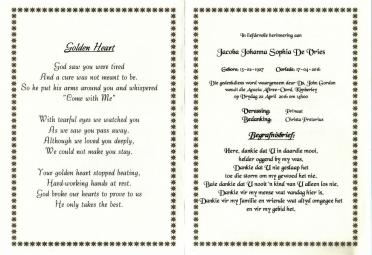 Golden Heart
God saw you were tired
And a cure was not meant to be.
So he put his arms around you and whispered
"Come with Me"
With tearful eyes we watched you
As we saw you pass away,
Although we loved you deeply,
We could not make you stay.
Your golden heart stopped beating,
Hard-working hands at rest.
God broke our hearts to prove to us
He only takes the best.
In liefdevolle herinnering aan
Jacoba Johanna Sophia De Vries
Gebore: 15-02-1927 Oorlede: 17-04-2016
Die gedenkdiens word waargeneem deur Ds. John Gordon
vanuit die Acacia Aftree-Oord, Kimberley
op Vrydag 22 April 2016 om 11h00
Verassing: Privaat
Bedanking: Christa Pretorius
Begrafnisbrief:
Here, dankie dat U in my was,
helder oggend by my was,
Dankie dat U nie geslaap het
toe die storm om my gewoed het nie,
Baie dankie dat U nooit 'n kind van U alleen los nie,
Dankie vir my mense wat vandag hier is,
Dankie vir my familie en vriende wat altyd omgegee het
en vir my gebid het.